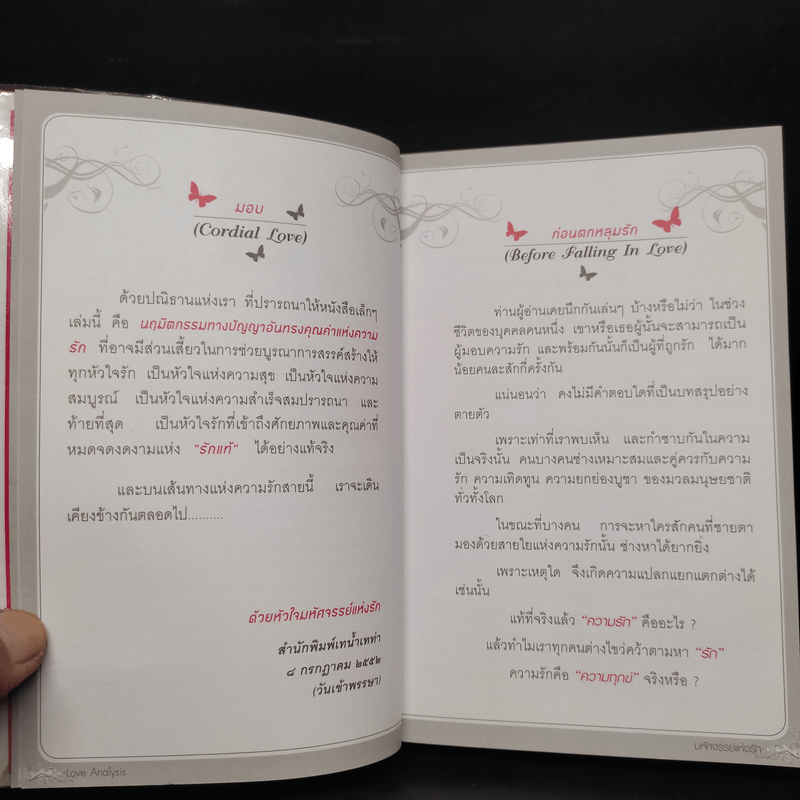 มอบ
(Cordial Love)
ด้วยปณิธานแห่งเรา ที่ปรารถนาให้หนังสือเล็กๆ
เล่มนี้ คือ นฤมิตกรรมทางปัญญาอันทรงคุณค่าแห่งความ
รัก ที่อาจมีส่วนเสี้ยวในการช่วยบูรณาการสรรค์สร้างให้
ทุกหัวใจรัก เป็นหัวใจแห่งความสุข เป็นหัวใจแห่งความ
สมบูรณ์ เป็นหัวใจแห่งความสำเร็จสมปรารถนา และ
ท้ายที่สุด เป็นหัวใจรักที่เข้าถึงศักยภาพและคุณค่าที่
หมดจดงดงามแห่ง "รักแท้" ได้อย่างแท้จริง
และบนเส้นทางแห่งความรักสายนี้ เราจะเดิน
เคียงข้างกันตลอดไป..........
ด้วยหัวใจมหัศจรรย์แห่งรัก
สำนักพิมพ์เทน้ำเทท่า
๘ กรกฎาคม ๒๕๕๒
(วันเข้าพรรษา)
Love Analysis
ก่อนตกหลุมรัก
(Before Falling In Love)
ท่านผู้อ่านเคยนึกกันเล่นๆ บ้างหรือไม่ว่า ในช่วง
ชีวิตของบุคคลคนหนึ่ง เขาหรือเธอผู้นั้นจะสามารถเป็น
ผู้มอบความรัก และพร้อมกันนั้นก็เป็นผู้ที่ถูกรัก ได้มาก
น้อยคนละสักกี่ครั้งกัน
แน่นอนว่า คงไม่มีคำตอบใดที่เป็นบทสรุปอย่าง
ตายตัว
เพราะเท่าที่เราพบเห็น และกำซาบกันในความ
เป็นจริงนั้น คนบางคนช่างเหมาะสมและคู่ควรกับความ
รัก ความเทิดทูน ความยกย่องบูชา ของมวลมนุษยชาติ
ทั่วทั้งโลก
ในขณะที่บางคน การจะหาใครสักคนที่ชายตา
มองด้วยสายใยแห่งความรักนั้น ช่างหาได้ยากยิ่ง
เพราะเหตุใด จึงเกิดความแปลกแยกแตกต่างได้
เช่นนั้น
แท้ที่จริงแล้ว "ความรัก" คืออะไร ?
แล้วทำไมเราทุกคนต่างไขว่คว้าตามหา "รัก"
ความรักคือ "ความทุกข์" จริงหรือ ?
มหัศจรรย์แห่งรัก